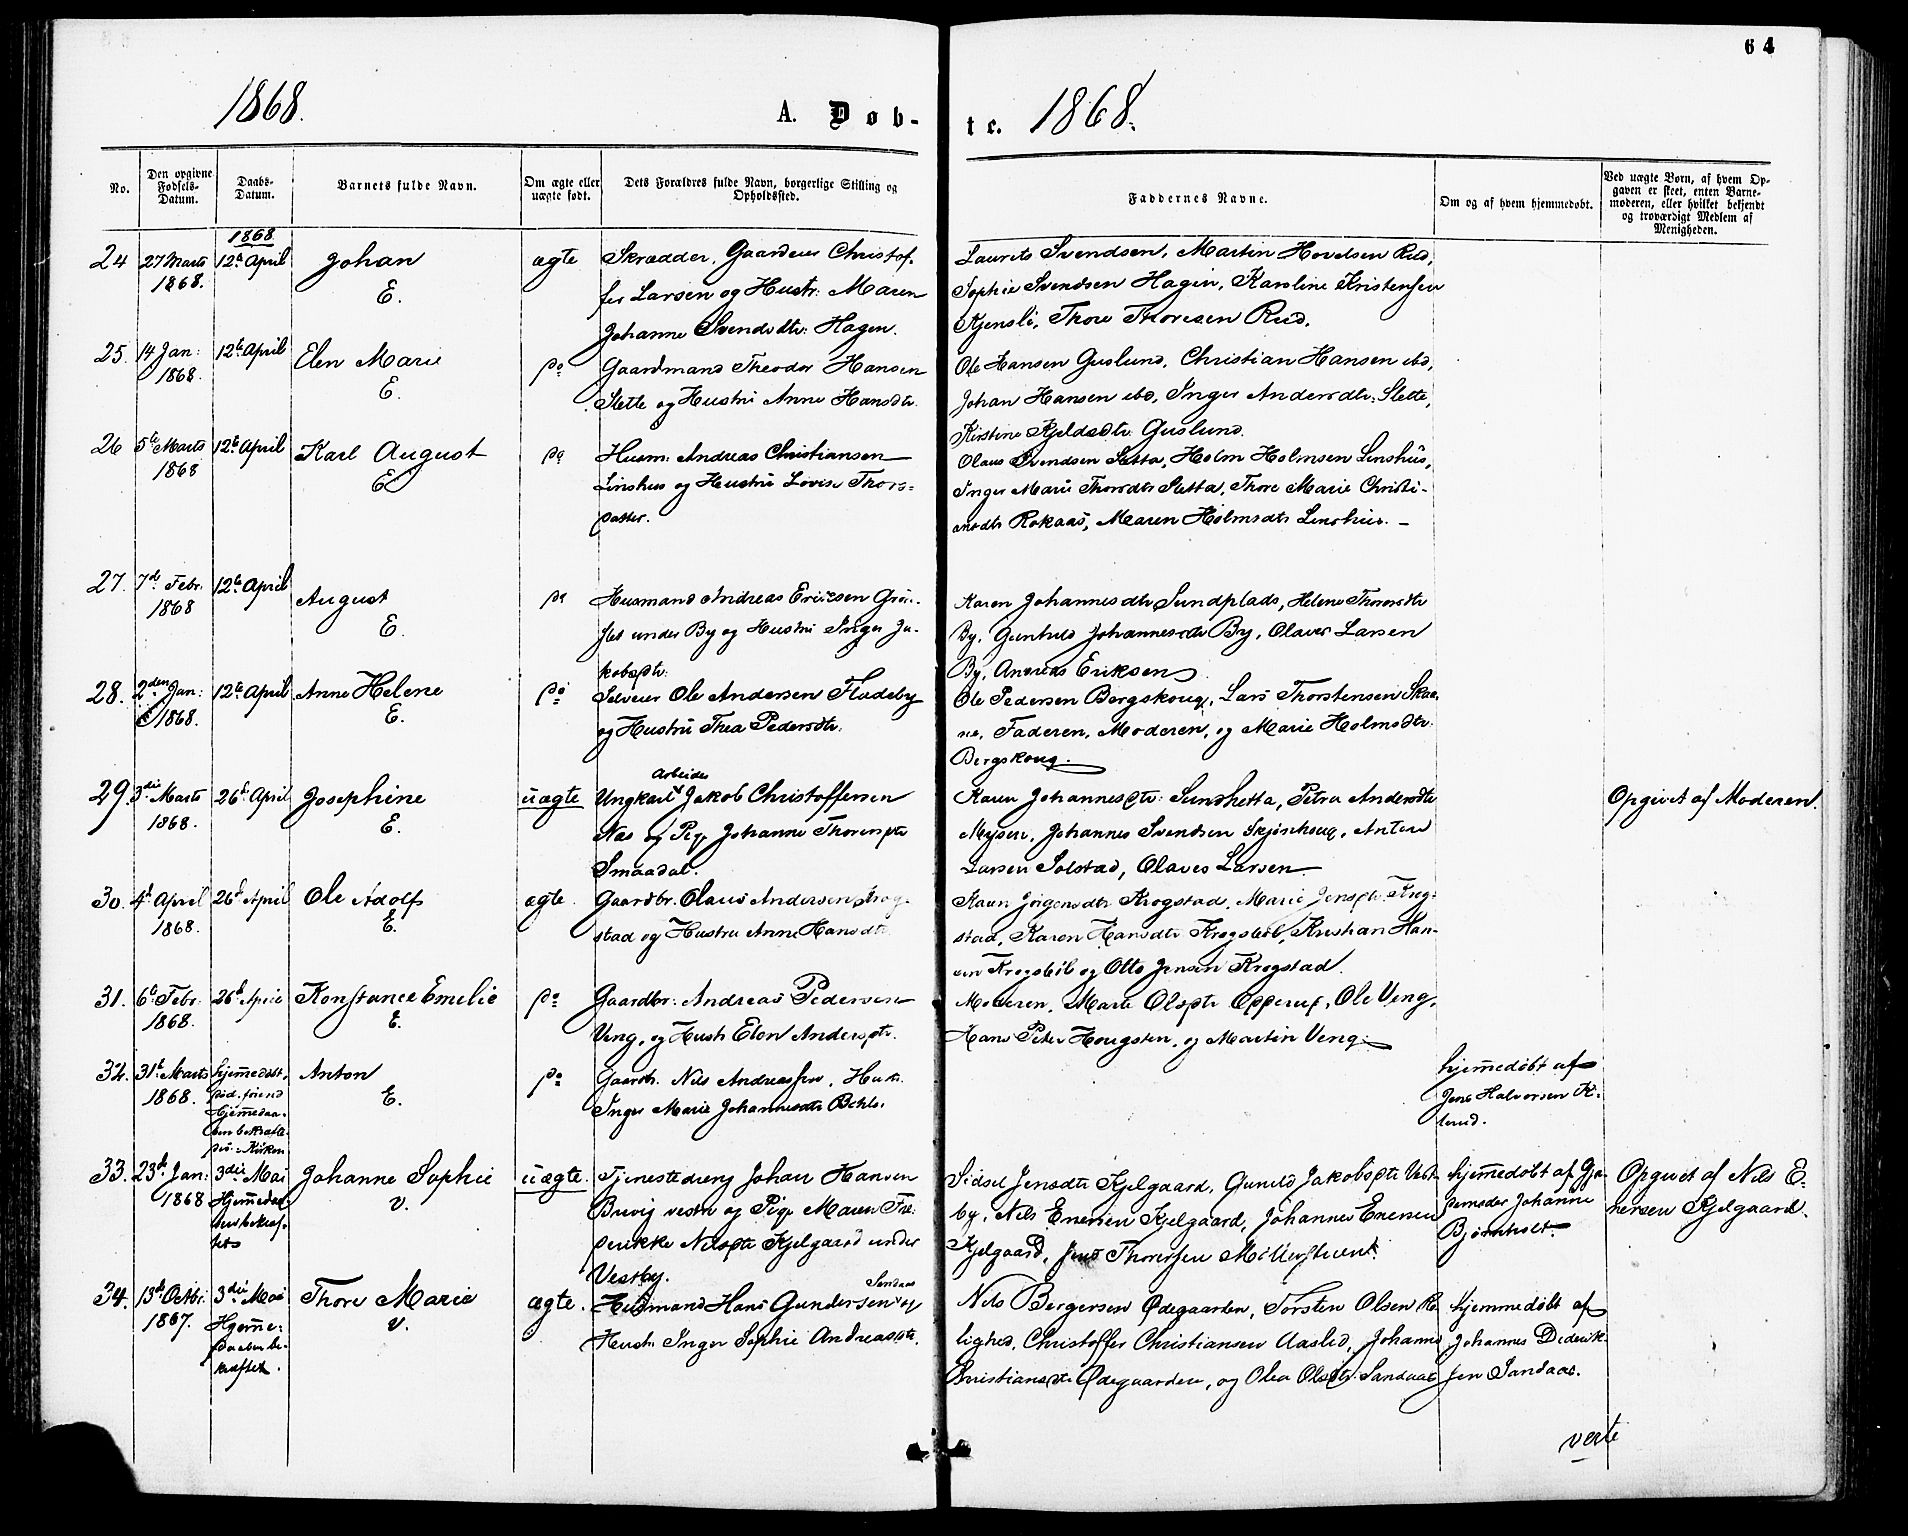 64
1868. A. Døb-
te. 1868.
No.
Den opgivne Fødsels-Datum.
Daabs-Datum.
Barnets fulde Navn.
Om ægte eller uægte født.
Dets Forældres fulde Navn, borgerlige Stilling og Opholdssted.
Faddernes Navne.
Om og af hvem hjemmedøbt.
Ved uægte Børn, af hvem Opgaven er skeet, enten Barnemoderen, eller hvilket bekjendt og troværdigt Medlem af Menigheden.
1868
24 27 Marts 1868. 12te April Johan E. ægte
Skrædder, Gaardeier Christof-
fer Larsen og Hustr: Maren
Johanne Svendsdtr: Hagen.
Laurits Svendsen, Martin Hovelsen Rud,
Sophie Svendsen Hagen, Karoline Kristensen
Kjensli, Thore Thoresen Rud.
25. 14 Jan: 1868. 12te April Elen Marie E. do
Gaardmand Theodor Hansen
Slette og Hustru Anne Hansdtr.
Ole Hansen Guslund, Christian Hansen ibd,
Johan Hansen ibd, Inger Andersdtr: Slette,
Kirstine Kjeldsdtr. Guslund.
26 5te Marts 1868 12te April Karl August E. do
Husm: Andreas Christiansen
Linshus og Hustru Lovise Thors-
datter.
Olaus Svendsen Sletta, Holm Holmsen Linshus,
Inger Marie Thorsdtr Sletta, Thore Marie Christi-
ansdtr Rokaas, Maren Holmsdtr Linshus. –
27. 7de Febr. 1868 12te April August E. do
Husmand Andreas Ericsen Grøn-
fet under By og Hustru Inger Ja-
kobsdtr.
Karen Johannesdtr Sundplads, Helene Thoresdtr
By, Gunhild Johannesdtr By, Olaves Larsen
By, Andreas Eriksen
28. 2den Jan: 1868. 12te April Anne Helene E. do
Selveier Ole Andersen Fladeby
og Hustru Thea Pedersdtr.
Ole Pedersen Bergskoug, Lars Thorstensen Skaa-
ne, Faderen, Moderen, og Marie Holmsdtr.
Bergskoug.
29. 3die Marts 1868. 26de April Josephine E. uægte
Arbeider
Ungkarl Jakob Christoffersen
Næs og Pige Johanne Thoresdtr
Smaadal.
Karen Johannesdtr: Sundsletta, Petra Andersdtr
Mysen, Johannes Svendsen Skjøshoug, Anton
Larsen Solstad, Olaves Larsen
Opgivet af Moderen.
30. 4de April 1868. 26de April Ole Adolf E. ægte.
Gaardbr. Olaus Andersen Krog-
stad og Hustru Anne Hansdtr
Karen Jørgensdtr Krogstad, Marie Jensdtr Krog-
stad, Karen Hansdtr Krogsbøl, Kristian Han-
sen Krogsbøl og Otto Jensen Krogstad.
31. 6te Febr. 1868. 26de April Konstance Emelie E. do
Gaardbr: Andreas Pedersen
Veng, og Hustr Elen Andersdtr.
Moderen, Marte Olsdtr Opperud, Ole Veng,
Hans Peter Hougsten, og Martin Veng.
32. 31te Marts 1868. Anton E. do
Gaardb. Nils Andreassen, Hustr.
Inger Marie Johannesdtr
hjemmedøbt af
Jens Halvorsen K-
lund.
33. 23de Jan: 1868 3die Mai Hjemmedaaben bekræftet Johanne Sophie v. uægte.
Tjenestedreng Johan Hansen
Brevig vestre og Pige Maren Fre-
derikke Nilsdtr Kjelgaard under
Vestby.
Sidsel Jensdtr Kjelgaard, Gunild Jakobsdtr Vest-
by, Nils Enersen Kjelgaard, Johannes Enersen
Kjelgaard, Jens Thoresen
hjemmedøbt af Gjo-
demoder Johanne
Bjørnholt.
Opgivet af Nils E-
nersen Kjelgaard.
34. 13de Octbr. 1867. 3die Mai Hjemmedaaben bekræftet. Thore Marie v. ægte.
Sandaas
Husmand Hans Gundersen og
Hustr. Inger Sophie Andreasdtr.
Nils Bergersen Ødegaarden, Torsten Olsen Ro-
lighed, Christoffer Christiansen Aaslid, Johanne
Christiansdtr Ødegaarden, og Olea Olsdtr. Sandaas
hjemmedøbt af
Johannes Diderik-
sen Sandaas.
verte